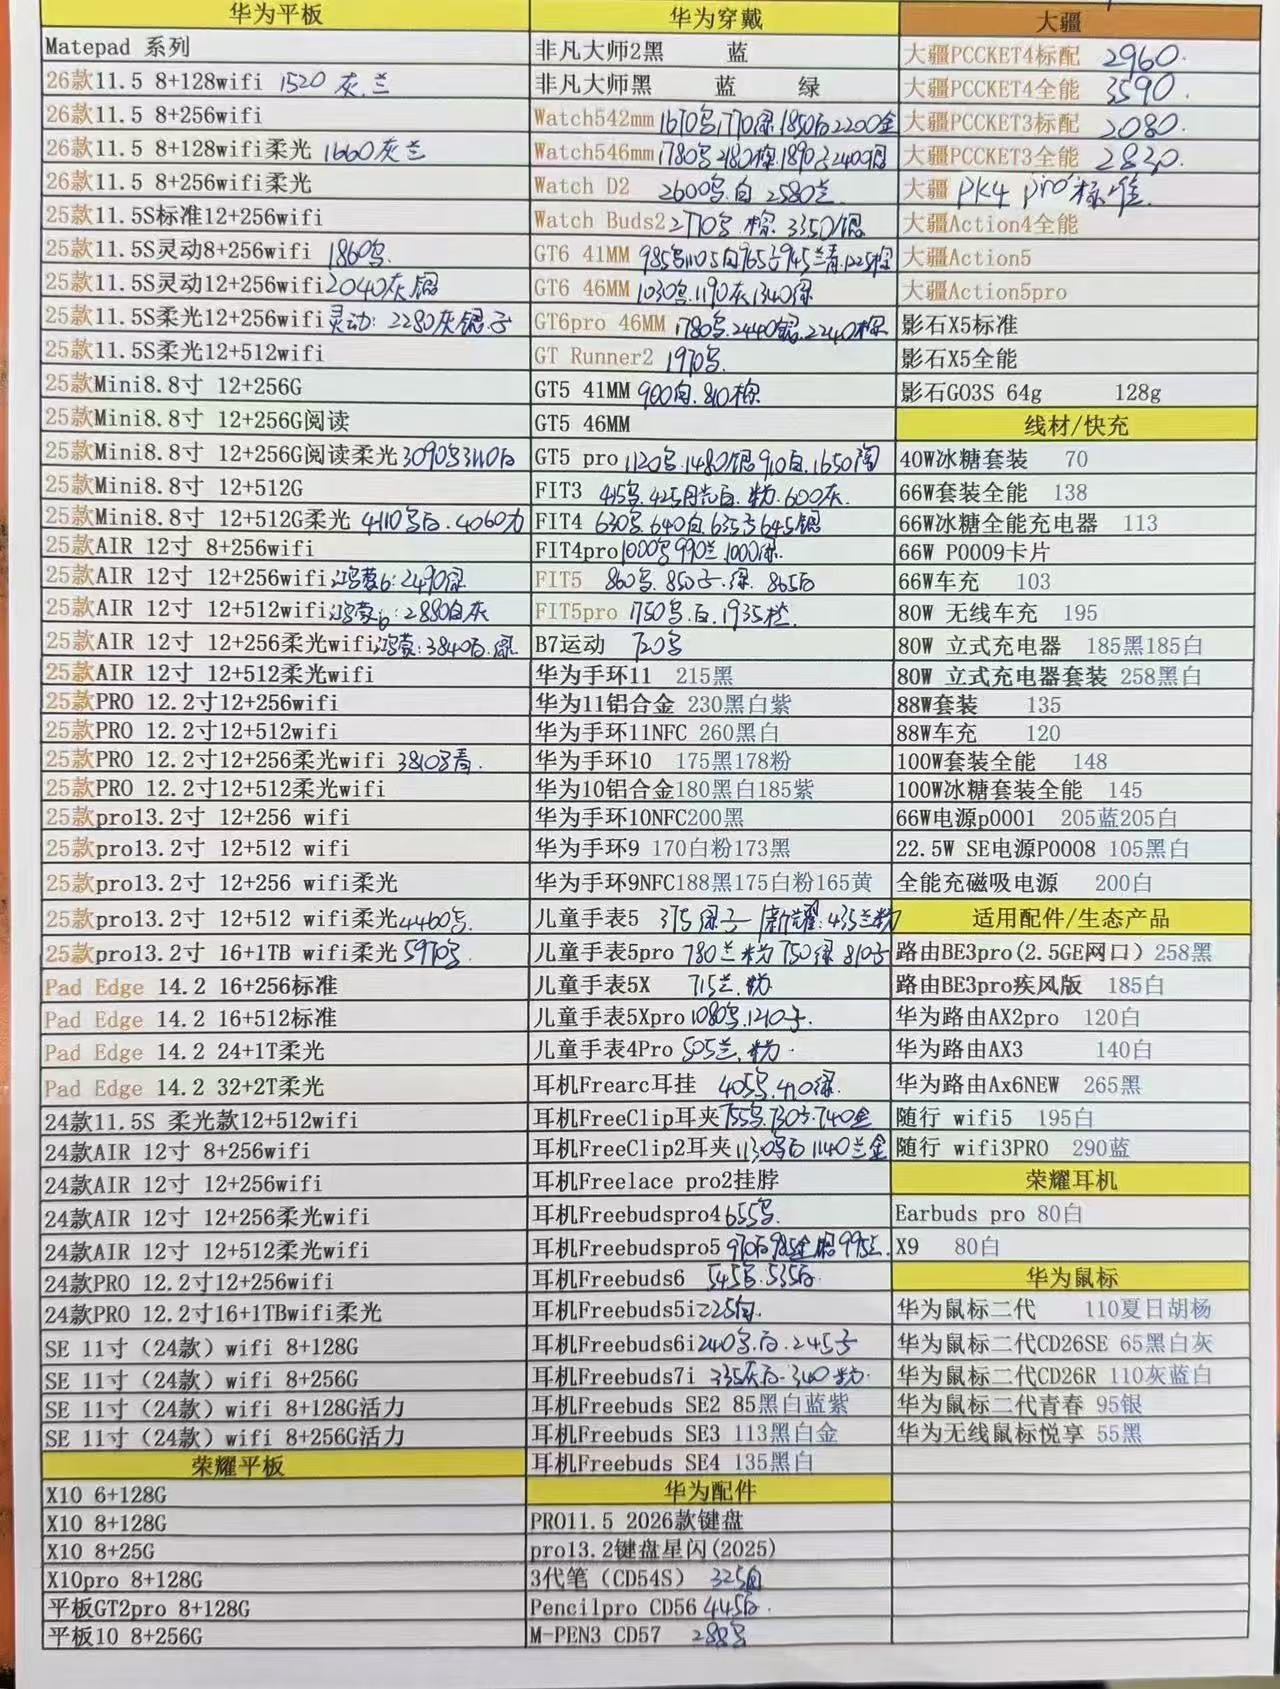 华为平板
Matepad 系列
26款11.5 8+128wifi 1520 灰.兰
26款11.5 8+256wifi
26款11.5 8+128wifi柔光 1660灰兰
26款11.5 8+256wifi柔光
25款11.5S标准12+256wifi
25款11.5S灵动8+256wifi 1860
25款11.5S灵动12+256wifi2040灰银
25款11.5S柔光12+256wifi灵动: 2280灰银子
25款11.5S柔光12+512wifi
25款Mini8.8寸 12+256G
25款Mini8.8寸 12+256G阅读
25款Mini8.8寸 12+256G阅读柔光3090 3110白
25款Mini8.8寸 12+512G
25款Mini8.8寸 12+512G柔光 4110 白.4060
25款AIR 12寸 8+256wifi
25款AIR 12寸 12+256wifi鸿蒙6:2490绿
25款AIR 12寸 12+512wifi鸿蒙6:2880白灰
25款AIR 12寸 12+256柔光wifi鸿蒙:3840白.绿
25款AIR 12寸 12+512柔光wifi
25款PRO 12.2寸12+256wifi
25款PRO 12.2寸12+512wifi
25款PRO 12.2寸12+256柔光wifi 3810 青.
25款PRO 12.2寸12+512柔光wifi
25款pro13.2寸 12+256 wifi
25款pro13.2寸 12+512 wifi
25款pro13.2寸 12+256 wifi柔光
25款pro13.2寸 12+512 wifi柔光4460
25款pro13.2寸 16+1TB wifi柔光 5970
Pad Edge 14.2 16+256标准
Pad Edge 14.2 16+512标准
Pad Edge 14.2 24+1T柔光
Pad Edge 14.2 32+2T柔光
24款11.5S 柔光款12+512wifi
24款AIR 12寸 8+256wifi
24款AIR 12寸 12+256wifi
24款AIR 12寸 12+256柔光wifi
24款AIR 12寸 12+512柔光wifi
24款PRO 12.2寸12+256wifi
24款PRO 12.2寸16+1TBwifi柔光
SE 11寸（24款）wifi 8+128G
SE 11寸（24款）wifi 8+256G
SE 11寸（24款）wifi 8+128G活力
SE 11寸（24款）wifi 8+256G活力
荣耀平板
X10 6+128G
X10 8+128G
X10 8+25G
X10pro 8+128G
平板GT2pro 8+128G
平板10 8+256G
华为穿戴
非凡大师2黑 蓝
非凡大师黑 蓝 绿
Watch542mm 1670 1770绿.1850白2200金
Watch546mm 1780 2180棕.1890子2400银
Watch D2 2600 .白 2580兰
Watch Buds2 2770 .棕. 3350银
GT6 41MM 985 1105白965子945兰青.1225棕
GT6 46MM 1030 .1190灰1340绿
GT6pro 46MM 1780 .2440银.2240棕
GT Runner2 1970
GT5 41MM 900白.810棕
GT5 46MM
GT5 pro 1120 .1480银910白.1650陶
FIT3 415 .425月光白.粉.600灰.
FIT4 630 640白.635子645银
FIT4pro1000 990兰1000绿.
FIT5 860 .850子.绿.865白
FIT5pro 1750 .白.1935橙.
B7运动 720
华为手环11 215黑
华为11铝合金 230黑白紫
华为手环11NFC 260黑白
华为手环10 175黑178粉
华为10铝合金180黑白185紫
华为手环10NFC200黑
华为手环9 170白粉173黑
华为手环9NFC188黑175白粉165黄
儿童手表5 375绿子 新耀:435兰粉
儿童手表5pro 780兰粉 750绿 810子
儿童手表5X 715兰.粉
儿童手表5Xpro 1080 .1210子.
儿童手表4Pro 505兰.粉.
耳机Frearc耳挂 405 .410绿.
耳机FreeClip耳夹755 .730子.740金
耳机FreeClip2耳夹1130 白 1140兰金
耳机Freelace pro2挂脖
耳机Freebudspro4 655
耳机Freebudspro5 970白985金银995兰
耳机Freebuds6 545 .535白.
耳机Freebuds5i 225白.
耳机Freebuds6i240 .白.245子
耳机Freebuds7i 335灰白.340粉.
耳机Freebuds SE2 85黑白蓝紫
耳机Freebuds SE3 113黑白金
耳机Freebuds SE4 135黑白
华为配件
PRO11.5 2026款键盘
pro13.2键盘星闪(2025)
3代笔（CD54S） 325白
Pencilpro CD56 445白.
M-PEN3 CD57 288
大疆
大疆PCCKET4标配 2960.
大疆PCCKET4全能 3590.
大疆PCCKET3标配 2080.
大疆PCCKET3全能 2830.
大疆 PK4 pro标准.
大疆Action4全能
大疆Action5
大疆Action5pro
影石X5标准
影石X5全能
影石GO3S 64g 128g
线材/快充
40W冰糖套装 70
66W套装全能 138
66W冰糖全能充电器 113
66W P0009卡片
66W车充 103
80W 无线车充 195
80W 立式充电器 185黑185白
80W 立式充电器套装 258黑白
88W套装 135
88W车充 120
100W套装全能 148
100W冰糖套装全能 145
66W电源p0001 205蓝205白
22.5W SE电源P0008 105黑白
全能充磁吸电源 200白
适用配件/生态产品
路由BE3pro(2.5GE网口）258黑
路由BE3pro疾风版 185白
华为路由AX2pro 120白
华为路由AX3 140白
华为路由Ax6NEW 265黑
随行 wifi5 195白
随行 wifi3PRO 290蓝
荣耀耳机
Earbuds pro 80白
X9 80白
华为鼠标
华为鼠标二代 110夏日胡杨
华为鼠标二代CD26SE 65黑白灰
华为鼠标二代CD26R 110灰蓝白
华为鼠标二代青春 95银
华为无线鼠标悦享 55黑